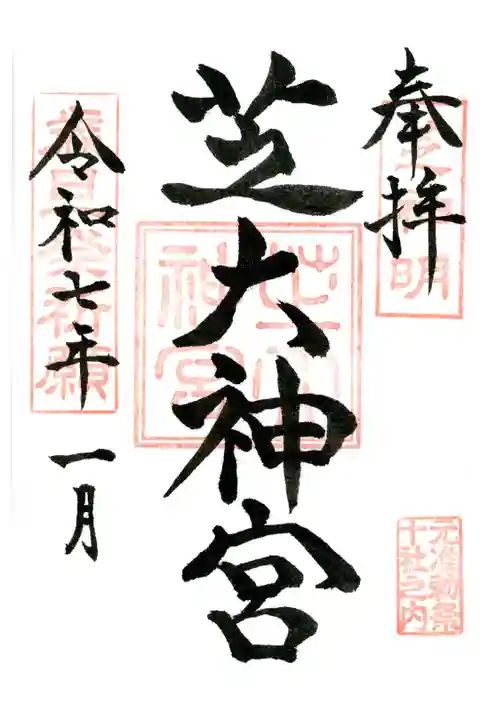 奉拝
芝大神宮
令和七年
一月
元准勅祭
十社之内